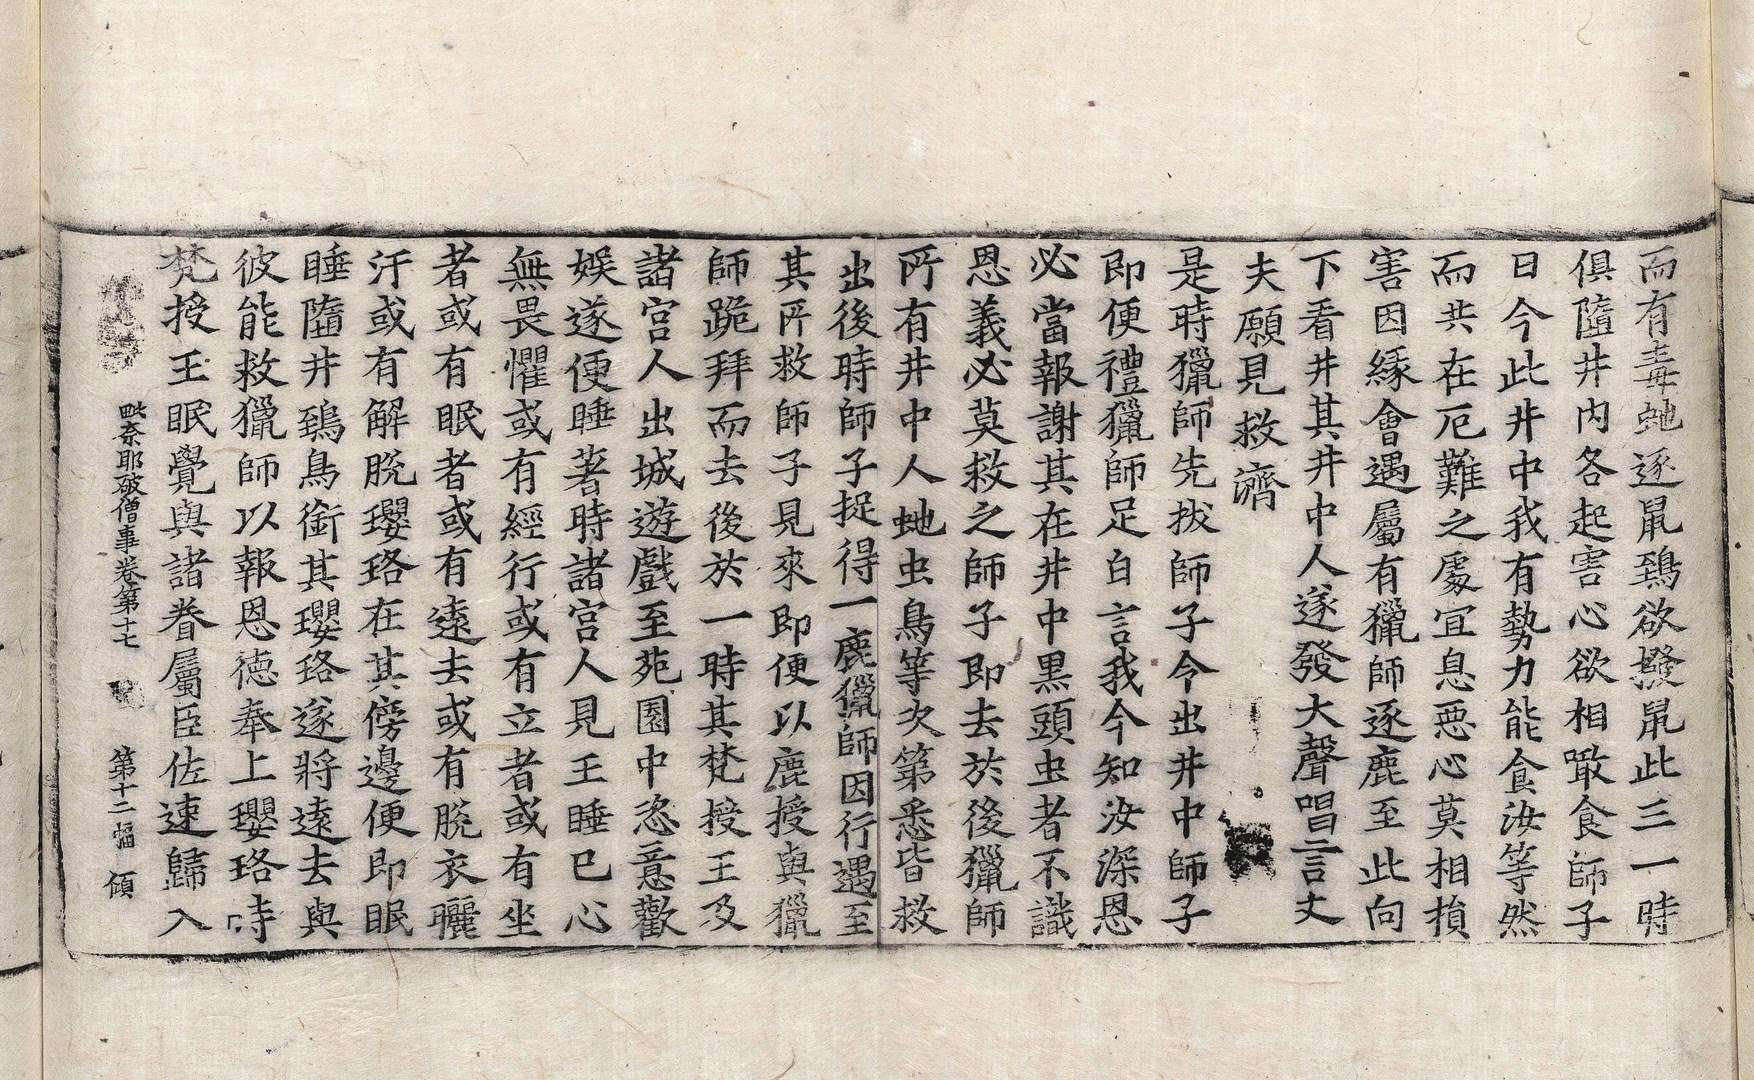 而有毒虵逐鼠鵄欲撥鼠此三一時
俱隨井內各起害心欲相噉食師子
曰今此井中我有勢力能食汝等然
而共在厄難之處宜息惡心莫相損
害因緣會遇屬有獵師逐鹿至此向
下看井其井中人遂發大聲唱言丈
夫願見救濟
是時獵師先拔師子今出井中師子
即便禮獵師足白言我今知汝深恩
必當報謝其在井中黑頭虫者不識
恩義必莫救之師子即去於後獵師
所有井中人虵虫鳥等次第悉皆救
出後時師子捉得一鹿獵師因行遇至
其所救師子見來即便以鹿授與獵
師跪拜而去後於一時其梵授王及
諸宮人出城遊戲至苑園中恣意歡
娛遂便睡著時諸宮人見王睡已心
無畏懼或有經行或有立者或有坐
者或有眠者或有遠去或有脫衣曬
汗或有解脫瓔珞在其傍邊便即眠
睡隨井鵄鳥銜其瓔珞遂將遠去與
彼能救獵師以報恩德奉上瓔珞時
梵授王眠覺與諸眷屬臣佐速歸入
毗奈耶破僧事卷第十七 第十二幅 傾